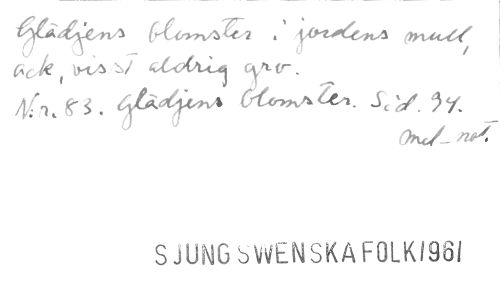 Glädjens blomster i jordens mull,
ack, visst aldrig gro.
N:r. 83. Glädjens blomster. Sid. 94.
mel-not.
SJUNG SWENSKA FOLK 1961